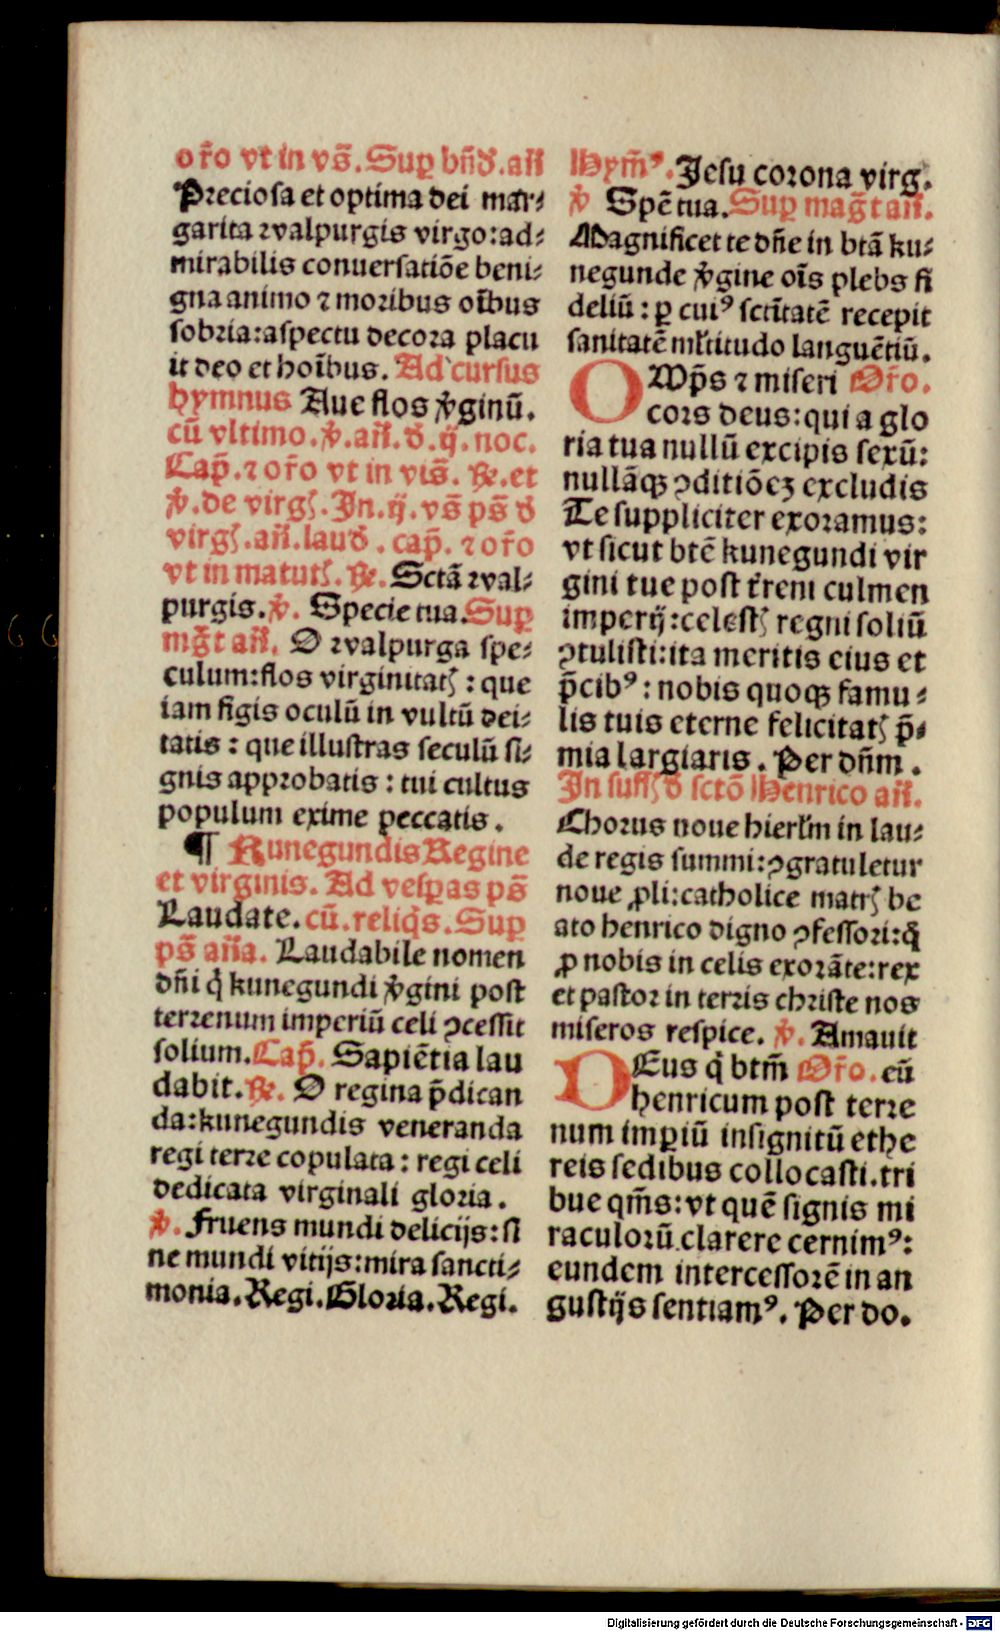 or̃o vt in vs̃. Suꝑ bn̄d̄. an̄
Preciosa et optima dei mar⸗
garita ꝛvalpurgis virgo: ad⸗
mirabilis conuersatiōe beni⸗
gna animo ⁊ moribus oĩbus
sobria: aspectu decora placu
it deo et hoĩbus. Ad cursus
hymnus Aue flos v̓ginū.
cū vltimo. v̓. an̄. d̄. ij. noc.
Cap̄. ⁊ or̃o vt in vis̃. ꝶ. et
v̓. de virgꝭ. In. ij. vs̃ ps̃ d̄
virgꝭ. an̄. laud̄. cap̄. ⁊ or̃o
vt in matutꝭ. ꝶ. Sctā ꝛval⸗
purgis. v̓. Specie tua. Suꝑ
mg̃t an̄. O ꝛvalpurga spe⸗
culum: flos virginitatꝭ: que
iam figis oculū in vultū dei⸗
tatis: que illustras seculū si⸗
gnis approbatis: tui cultus
populum exime peccatis.
¶ Kunegundis Regine
et virginis. Ad vesꝑas ps̃
Laudate. cū. reliq̃s. Suꝑ
ps̃ an̄a. Laudabile nomen
dn̄i q̓ kunegundi v̓gini post
terrenum imperiū celi ꝯcessit
solium. Cap̄. Sapiētia lau
dabit. ꝶ. O regina p̄dican
da: kunegundis veneranda
regi terre copulata: regi celi
dedicata virginali gloria.
v̓. Fruens mundi delicijs: si
ne mundi vitijs: mira sancti⸗
monia. Regi. Gloria. Regi.
Hym̄ꝰ. Jesu corona virg.
v̓ Spē tua. Suꝑ mag̃t an̄.
Magnificet te dn̄e in btā ku⸗
negunde v̓gine oĩs plebs fi
deliū: ꝑ cuiꝰ sctĩtatē recepit
sanitatē ml̓titudo languētiū.
OMp̄s ⁊ miseri Or̃o.
cors deus: qui a glo
ria tua nullū excipis sexū:
nullāqꝫ ꝯditiōeꝫ excludis
Te suppliciter exoramus:
vt sicut btē kunegundi vir
gini tue post t̓reni culmen
imperij: celestꝭ regni soliū
ꝯtulisti: ita meritis eius et
p̄cibꝰ: nobis quoqꝫ famu⸗
lis tuis eterne felicitatꝭ p̄⸗
mia largiaris. Per dn̄m.
In suffꝭ d̄ sctō Henrico an̄.
Chorus noue hierl̓m in lau⸗
de regis summi: ꝯgratuletur
noue ꝓli: catholice matrꝭ be
ato henrico digno ꝯfessori: q̓
ꝓ nobis in celis exorāte: rex
et pastor in terris christe nos
miseros respice. v̓. Amauit
DEus q̓ btm̄ Or̃o. eū
henricum post terre
num imꝑiū insignitū ethe
reis sedibus collocasti. tri
bue qm̄s: vt quē signis mi
raculorū clarere cernimꝰ:
eundem intercessorē in an
gustijs sentiamꝰ. Per do.
Digitalisierung gefördert durch die Deutsche Forschungsgemeinschaft - DFG